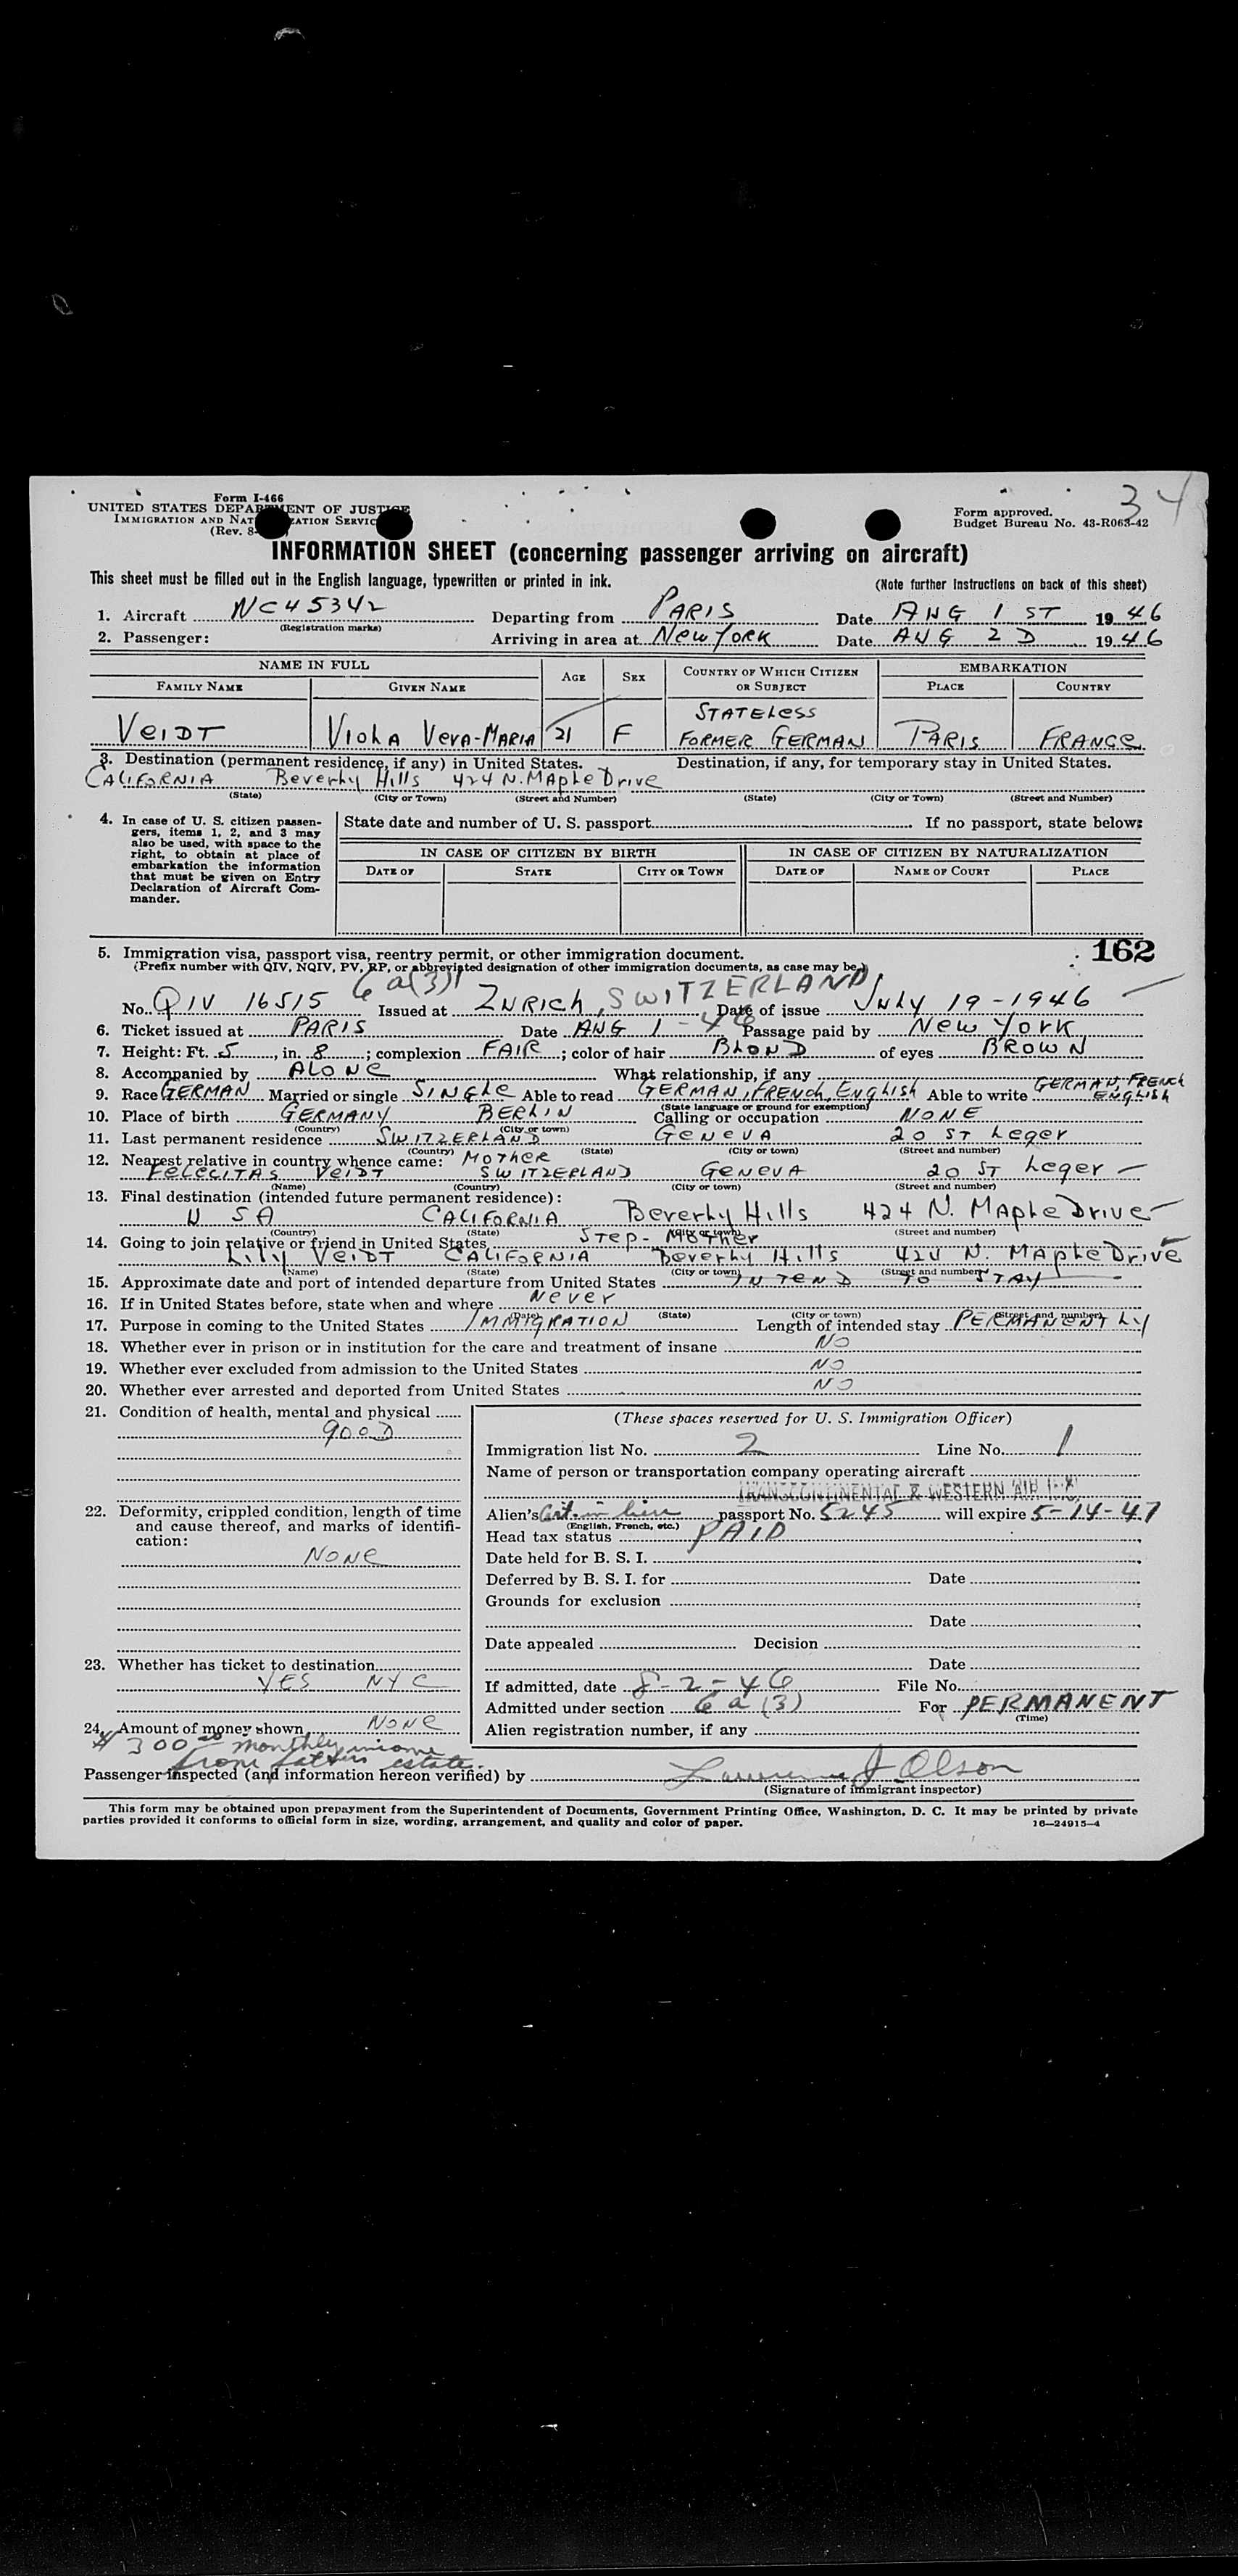 34
Form I-466
UNITED STATES DEPARTMENT OF JUSTICE
IMMIGRATION AND NATURALIZATION SERVICE
(Rev. 8-
Form approved.
Budget Bureau No. 43-R063-42
INFORMATION SHEET (concerning passenger arriving on aircraft)
This sheet must be filled out in the English language, typewritten or printed in ink. (Note further instructions on back of this sheet)
1. Aircraft NC45342 Departing from PARIS Date AUG 1 ST 1946
(Registration marks)
2. Passenger: Arriving in area at New York Date AUG 2 D 1946
NAME IN FULL AGE SEX COUNTRY OF WHICH CITIZEN OR SUBJECT EMBARKATION
FAMILY NAME GIVEN NAME PLACE COUNTRY
STATELESS
VEIDT VIOLA VERA-MARIA 21 F FORMER GERMAN PARIS FRANCE
3. Destination (permanent residence, if any) in United States. Destination, if any, for temporary stay in United States.
CALIFORNIA Beverly Hills 424 N. Maple Drive
(State) (City or Town) (Street and Number) (State) (City or Town) (Street and Number)
4. In case of U. S. citizen passengers, items 1, 2, and 3 may also be used, with space to the right, to obtain at place of embarkation the information that must be given on Entry Declaration of Aircraft Commander.
State date and number of U. S. passport If no passport, state below:
IN CASE OF CITIZEN BY BIRTH IN CASE OF CITIZEN BY NATURALIZATION
DATE OF STATE CITY OR TOWN DATE OF NAME OF COURT PLACE
162
5. Immigration visa, passport visa, reentry permit, or other immigration document.
(Prefix number with QIV, NQIV, PV, RP, or abbreviated designation of other immigration documents, as case may be.)
6a(3)
No. QIV 16515 Issued at ZURICH, SWITZERLAND Date of issue July 19-1946
6. Ticket issued at PARIS Date AUG 1-46 Passage paid by New York
7. Height: Ft. 5, in. 8; complexion FAIR; color of hair BLOND of eyes BROWN
8. Accompanied by ALONE What relationship, if any
9. Race GERMAN Married or single SINGLE Able to read GERMAN, FRENCH, ENGLISH Able to write GERMAN, FRENCH ENGLISH
(State language or ground for exemption)
10. Place of birth GERMANY BERLIN Calling or occupation NONE
(Country) (City or town)
11. Last permanent residence SWITZERLAND GENEVA 20 ST Leger
(Country) (State) (City or town) (Street and number)
12. Nearest relative in country whence came: MOTHER
FELECITAS VEIDT SWITZERLAND GENEVA 20 ST Leger
(Name) (Country) (City or town) (Street and number)
13. Final destination (intended future permanent residence):
USA CALIFORNIA Beverly Hills 424 N. Maple Drive
(Country) (State) (City or town) (Street and number)
14. Going to join relative or friend in United States Step-Mother
LILY VEIDT CALIFORNIA Beverly Hills 424 N. Maple Drive
(Name) (State) (City or town) (Street and number)
15. Approximate date and port of intended departure from United States INTEND TO STAY
16. If in United States before, state when and where Never
(Date) (State) (City or town) (Street and number)
17. Purpose in coming to the United States IMMIGRATION Length of intended stay PERMANENTLY
18. Whether ever in prison or in institution for the care and treatment of insane NO
19. Whether ever excluded from admission to the United States NO
20. Whether ever arrested and deported from United States NO
21. Condition of health, mental and physical
GOOD
22. Deformity, crippled condition, length of time and cause thereof, and marks of identification:
NONE
23. Whether has ticket to destination
YES NYC
24. Amount of money shown NONE
$300.00 monthly income
from father's estate.
(These spaces reserved for U. S. Immigration Officer)
Immigration list No. 2 Line No. 1
Name of person or transportation company operating aircraft
TRANSCONTINENTAL & WESTERN AIR INC.
Alien's Cert. in lieu passport No. 5245 will expire 5-14-47
(English, French, etc.)
Head tax status PAID
Date held for B. S. I.
Deferred by B. S. I. for Date
Grounds for exclusion
Date
Date appealed Decision
Date
If admitted, date 8-2-46 File No.
Admitted under section 6a(3) For PERMANENT
(Time)
Alien registration number, if any
Passenger inspected (and information hereon verified) by Lawrence J Olson
(Signature of immigrant inspector)
This form may be obtained upon prepayment from the Superintendent of Documents, Government Printing Office, Washington, D. C. It may be printed by private
parties provided it conforms to official form in size, wording, arrangement, and quality and color of paper. 16—24915-4